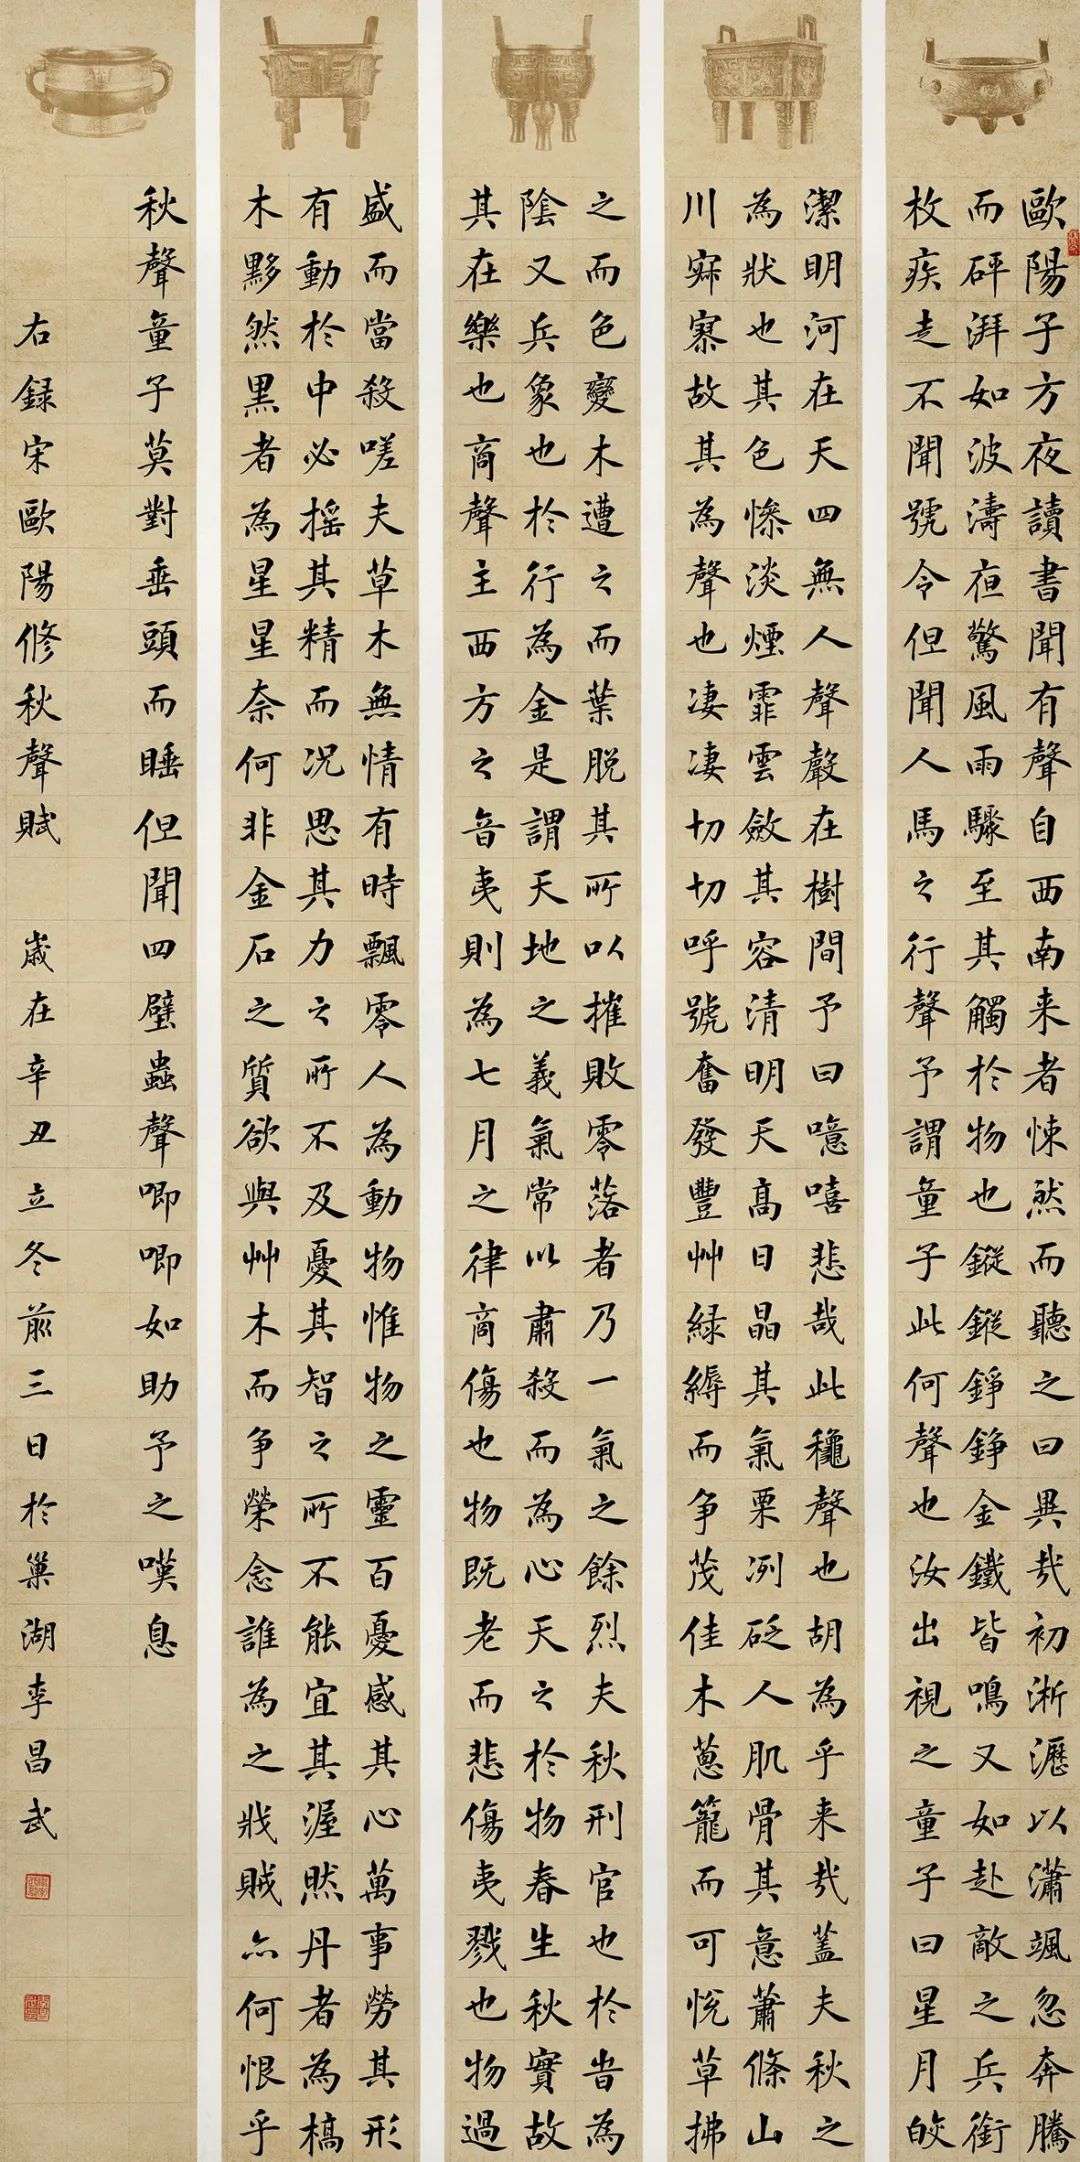 歐陽子方夜讀書聞有聲自西南来者悚然而聽之曰異哉初淅瀝以瀟颯忽奔騰
而砰湃如波濤夜驚風雨驟至其觸於物也鏦鏦錚錚金鐵皆鳴又如赴敵之兵銜
枚疾走不聞號令但聞人馬之行聲予謂童子此何聲也汝出視之童子曰星月皎
潔明河在天四無人聲聲在樹間予曰噫嘻悲哉此穐聲也胡為乎来哉蓋夫秋之
為狀也其色慘淡煙霏雲斂其容清明天高日晶其氣栗冽砭人肌骨其意蕭條山
川寂寥故其為聲也凄凄切切呼號奮發豐艸緑縟而争茂佳木蔥籠而可悅草拂
之而色變木遭之而葉脱其所以摧敗零落者乃一氣之餘烈夫秋刑官也於旹為
陰又兵象也於行為金是謂天地之義氣常以肅殺而為心天之於物春生秋實故
其在樂也商聲主西方之音夷則為七月之律商傷也物既老而悲傷夷戮也物過
盛而當殺嗟夫草木無情有時飄零人為動物惟物之靈百憂感其心萬事勞其形
有動於中必摇其精而況思其力之所不及憂其智之所不能宜其渥然丹者為槁
木黟然黑者為星星奈何非金石之質欲與艸木而争榮念誰為之戕賊亦何恨乎
秋聲童子莫對垂頭而睡但聞四壁蟲聲唧唧如助予之嘆息
右録宋歐陽修秋聲賦 歲在辛丑立冬前三日於巢湖李昌武